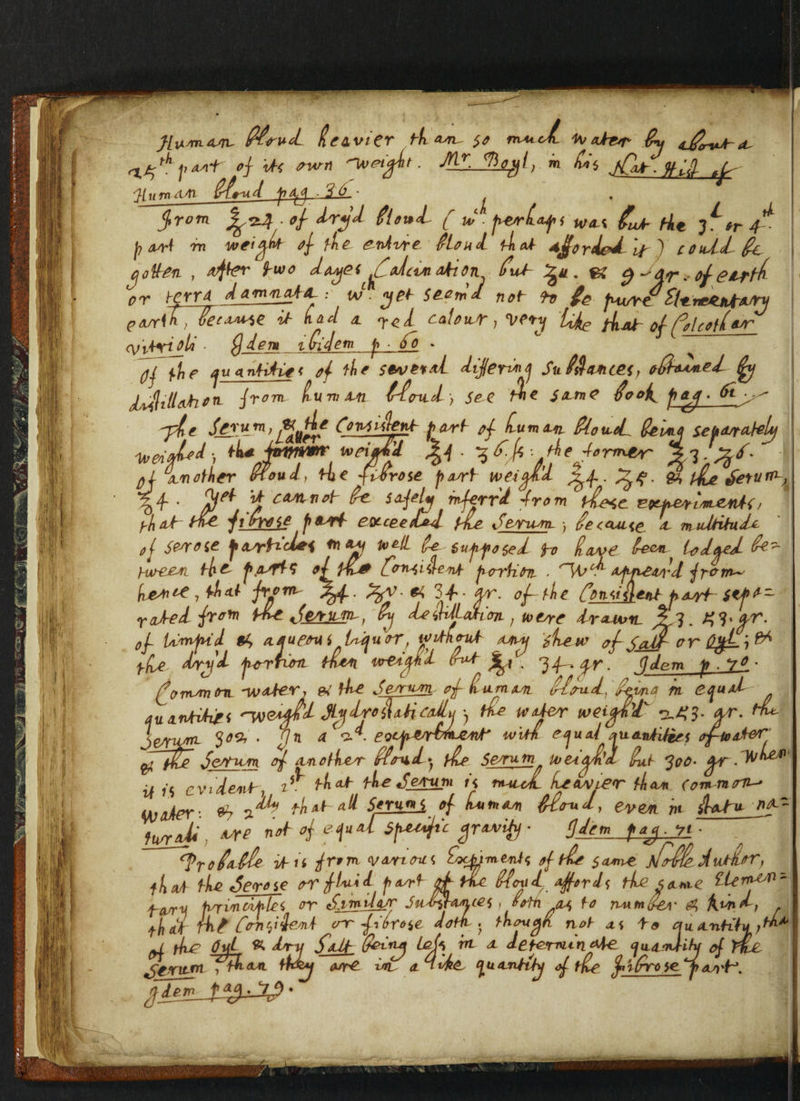 Human Bloud heavier than so much water by about a
25th part of its own weight. Mr. Boyl, in his Nat. Hist. of
Human Bloud pag. 36.
From ℥24. of dry'd bloud (wch perhaps was but the 3d or 4th
part in weight of the entire bloud that afforded it) could be
gotten, after two dayes Calcination, but ʒii. & 9 gr. of earth
or terra damnata: wch yet seem'd not to be pure Elementary
earth, because it had a red colour, very like that of Colcothar
vitrioli. Idem ibidem p. 60.
Of the quantities of the several differing Substances, obtained by
distillation from human bloud; see the same book pag. 61.
The Serum, & the Consistent part of human bloud being separately
weighed; the latter weigh'd ℥4. ʒ6.fs: the former ℥3. ʒ6.
Of another bloud, the fibrose part weigh'd ℥4. & the Serum,
℥4. Yet it cannot be safely inferr'd from these experiments,
that the fibrose part exceeded the Serum; because a multitude
of serose particles may well be supposed to have been lodged be-
tween the parts of the Consistent portion. Wch appear'd from
hence, that from ℥4. ʒv. & 34. gr. of the Consistent part sepa-
rated from the Serum, by destillation, were drawn ℥3. 43. gr.
of limpid & aqueous liquor, without any shew of Salt or Oyl; &
the dry'd portion then weigh'd but ℥i. 34. gr. Idem p. 70.
Common water, & the Serum of human bloud, being in equal
quantities weigh'd Hydrostatically; the water weigh'd 253. gr. the
Serum 302. In a 2d. experiment with equal quantities of water
& the Serum of another bloud; the Serum weigh'd but 300. gr. When
it is evident, 1st that the Serum is much heavier than common
Water: & 2dly that all Serums of human bloud, even in statu na-
turali, are not of equal Specific gravity. Idem pag. 71.
Probable it is from various Expiments of the same Noble Author,
that the Serose or fluid part of the bloud affords the same Elemen-
tary principles, or Similar Substances, both as to number & kind,
that the Consistent or fibrose doth; though not as to quantity, that
of the Oyl & dry Salt being less in a determinate quantity of the
Serum, than they are in a like quantity of the fibrose part.
Idem pag. 79.